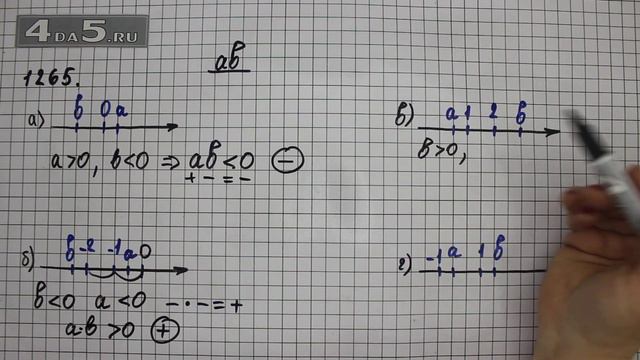 4DA5.RU
ab
1265.
а) b 0 a
a>0, b<0 ⇒ ab<0 ⊖
+ - = -
б) b -2 -1 a 0
b<0 a<0 - · - = +
a·b>0 ⊕
в) a 1 2 b
b>0,
г) -1 a 1 b